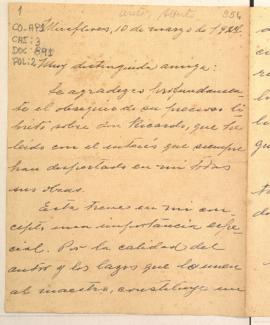 1
354
CO-AP1
CAJ: 3
DOC: 891
FOL: 2
Miraflores, 10 de marzo de 1924.
Muy distinguida amiga:
Le agradezco profundamen-
te el obsequio de su precioso li-
brito sobre don Ricardo, que he
leido con el interés que siempre
han despertado en mí todas
sus obras.
Esta tienes en mi con-
cepto una importancia espe-
cial. Por la calidad del
autor y los lazos que la unen
al maestro, constituye un